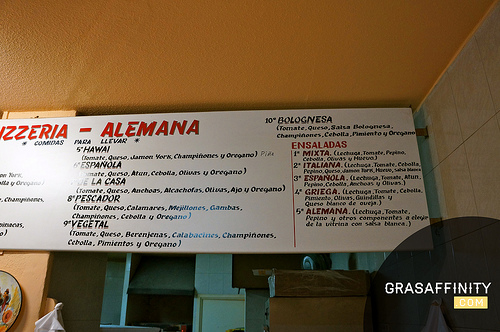 IZZERIA - ALEMANA
* COMIDAS PARA LLEVAR *
5ª HAWAI
(Tomate, Queso, Jamon York, Champiñones y Oregano)
ESPAÑOLA
(Tomate, Queso, Atun, Cebolla, Olivas y Oregano)
DE LA CASA
(Tomate, Queso, Anchoas, Alcachofas, Olivas, Ajo y Oregano)
8ª PESCADOR
(Tomate, Queso, Calamares, Mejillones, Gambas,
Champiñones, Cebolla y Oregano)
9ª VEGETAL
(Tomate, Queso, Berenjenas, Calabacines, Champiñones,
Cebolla, Pimientos y Oregano)
10ª BOLOGNESA
(Tomate, Queso, Salsa Bolognesa,
Champiñones, Cebolla, Pimiento y Oregano
ENSALADAS
1ª MIXTA. (Lechuga, Tomate, Pepino,
Cebolla, Olivas y Huevo)
2ª ITALIANA. (Lechuga, Tomate, Cebolla,
Pepino, Queso, Jamon York, Huevo, Salsa
3ª ESPAÑOLA. (Lechuga, Tomate, Atun,
Pepino, Cebolla, Anchoas y Olivas)
4ª GRIEGA. (Lechuga, Tomate, Cebolla,
Pimiento, Olivas, Guindillas y
Queso blanco de oveja.)
5ª ALEMANA. (Lechuga, Tomate,
Pepino y otros componentes a elegir
de la vitrina con salsa blanca.)
GRASAFFINITY
.COM